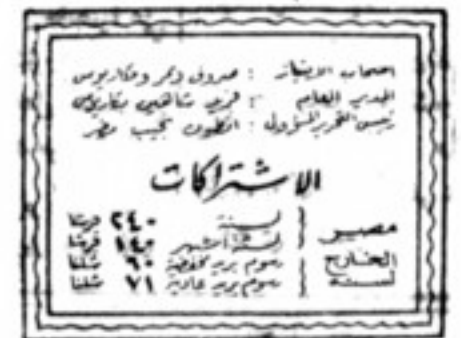 اصحاب الامتياز : صروف ونمر ومكاريوس
المدير العام : فريد شاهين مكاريوس
رئيس التحرير المسؤول : انطون نجيب مطر
الاشتراكات
مصر لسنة ٢٤٠ قرشا
لستة اشهر ١٤٠ قرشا
الخارج رسوم بريد مخفضة ٦٠ شلنا
لسنة رسوم بريد عادية ٧١ شلنا